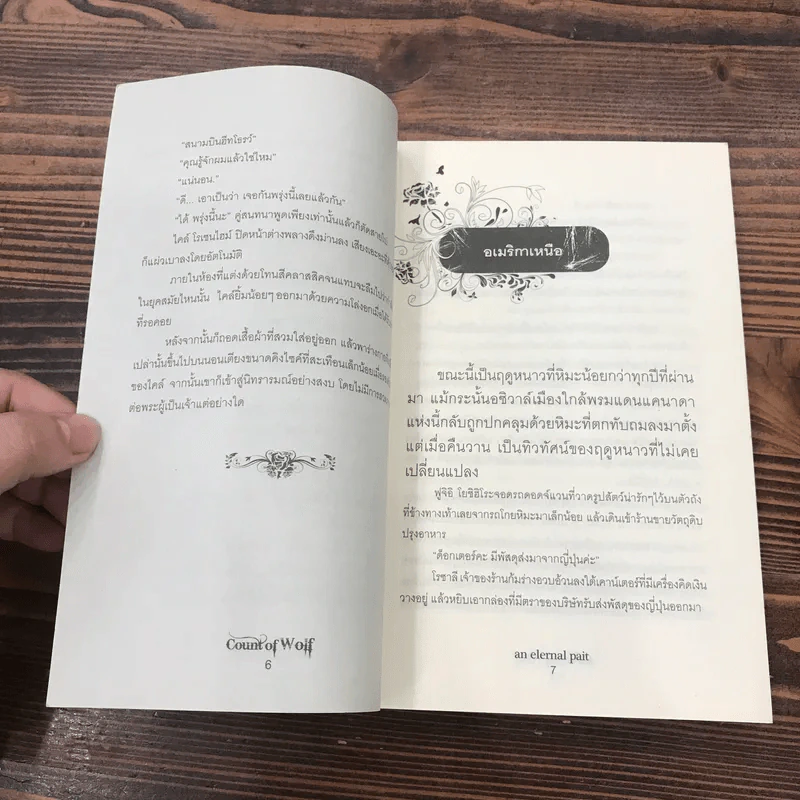 "สนามบินฮีทโธรว์"
"คุณรู้จักผมแล้วใช่ไหม"
"แน่นอน."
"ดี... เอาเป็นว่า เจอกันพรุ่งนี้เลยแล้วกัน"
"ได้ พรุ่งนี้นะ" คู่สนทนาพูดเพียงเท่านั้นแล้วก็ตัดสาย
ไคล์ โรเซนไฮม์ ปิดหน้าต่างพลางดึงม่านลง
ก็แผ่วเบาลงโดยอัตโนมัติ
ภายในห้องที่แต่งด้วยโทนสีคลาสสิคจนแทบจะลืมไปว่า
ในยุคสมัยไหนนั้น ไคล์ยิ้มน้อยๆ ออกมาด้วยความโล่งอกเมื่อ
ที่รอคอย
หลังจากนั้นก็ถอดเสื้อผ้าที่สวมใส่อยู่ออก แล้วพาร่าง
เปล่านั้นขึ้นไปบนนอนเตียงขนาดคิงไซค์ที่สะเทือนเล็กน้อย
ของไคล์ จากนั้นเขาก็เข้าสู่นิทรารมณ์อย่างสงบ โดยไม่มีการ
ต่อพระผู้เป็นเจ้าแต่อย่างใด
Count of Wolf
6
อเมริกาเหนือ
ขณะนี้เป็นฤดูหนาวที่หิมะน้อยกว่าทุกปีที่ผ่าน
มา แม้กระนั้นอซิวาล์เมืองใกล้พรมแดนแคนาดา
แห่งนี้กลับถูกปกคลุมด้วยหิมะที่ตกทับถมลงมาตั้ง
แต่เมื่อคืนวาน เป็นทิวทัศน์ของฤดูหนาวที่ไม่เคย
เปลี่ยนแปลง
ฟูจิอิ โยชิฮิโระจอดรถดอดจ์แวนที่วาดรูปสัตว์น่ารักๆ ไว้บนตัวถัง
ที่ข้างทางเท้าเลยจากรถโกยหิมะมาเล็กน้อย แล้วเดินเข้าร้านขายวัตถุดิบ
ปรุงอาหาร
"ด็อกเตอร์คะ มีพัสดุส่งมาจากญี่ปุ่นค่ะ"
โรซาลี เจ้าของร้านก้มร่างอวบอ้วนลงใต้เคาน์เตอร์ที่มีเครื่องคิดเงิน
วางอยู่ แล้วหยิบเอากล่องที่มีตราของบริษัทรับส่งพัสดุของญี่ปุ่นออกมา
an elernal pait
7